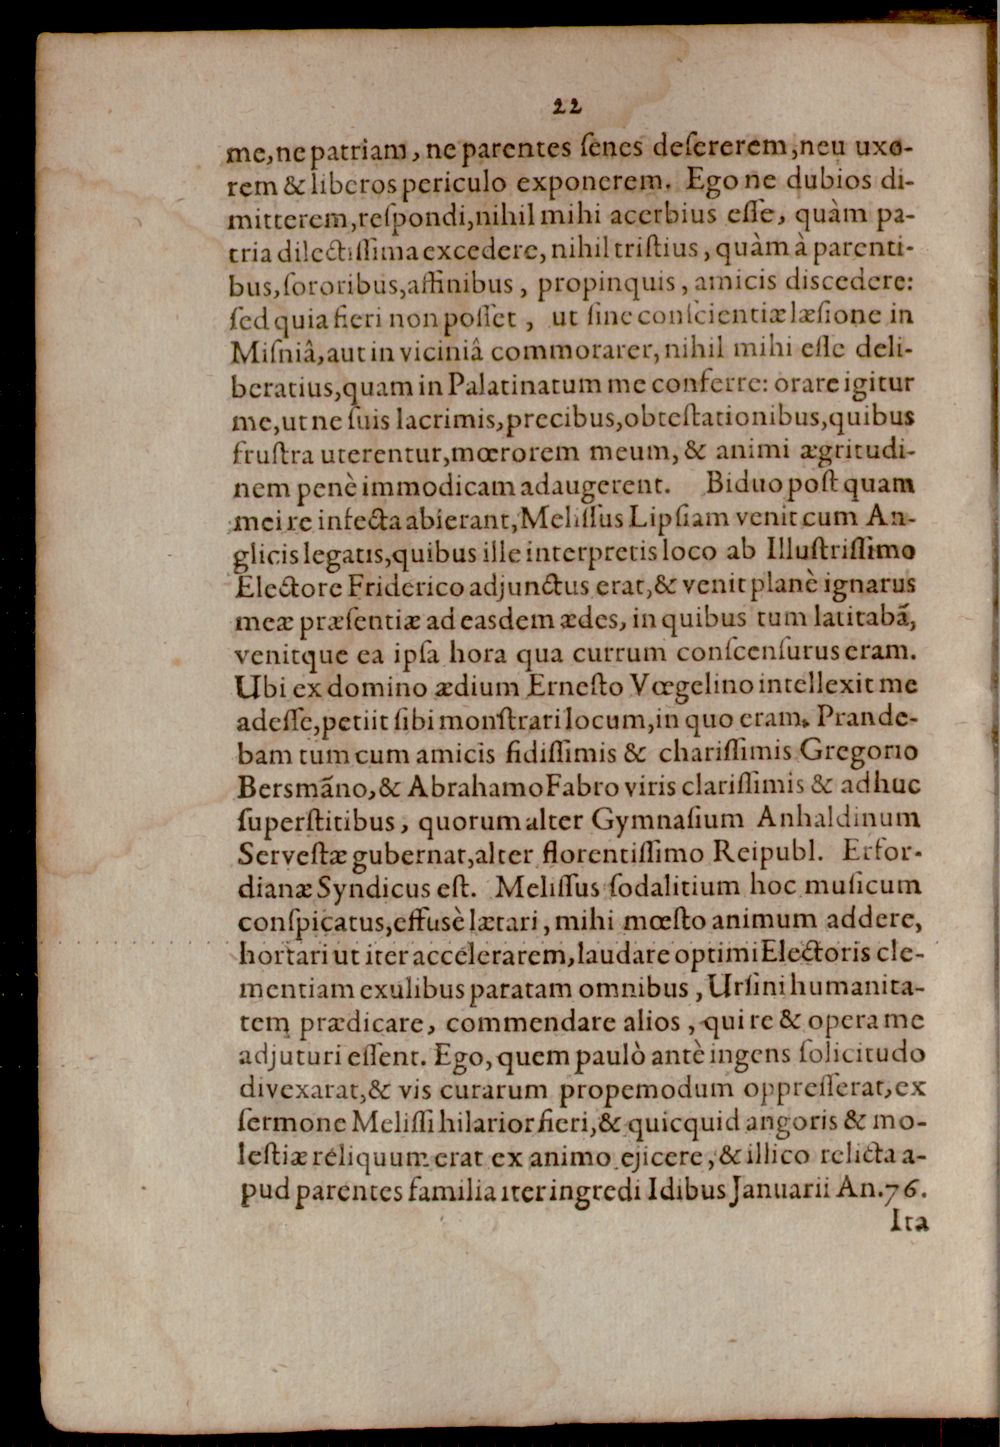 22
me, ne patriam, ne parentes ſenes deſererem, neu uxo-
rem & liberos periculo exponerem. Ego ne dubios di-
mitterem, reſpondi, nihil mihi acerbius eſſe, quàm pa-
tria dilectiſſima excedere, nihil triſtius, quàm à parenti-
bus, ſororibus, affinibus, propinquis, amicis discedere:
ſed quia fieri non poſſet, ut ſine conſcientiæ læſione in
Miſniâ, aut in viciniâ commorarer, nihil mihi eſſe deli-
beratius, quam in Palatinatum me conferre: orare igitur
me, ut ne ſuis lacrimis, precibus, obteſtationibus, quibus
fruſtra uterentur, mœrorem meum, & animi ægritudi-
nem penè immodicam adaugerent. Biduo poſt quam
mei re infecta abierant, Meliſſus Lipſiam venit cum An-
glicis legatis, quibus ille interpretis loco ab Illuſtriſſimo
Electore Friderico adjunctus erat, & venit planè ignarus
meæ præſentiæ ad easdem ædes, in quibus tum latitabā,
venitque ea ipſa hora qua currum conſcenſurus eram.
Ubi ex domino ædium Erneſto Vœgelino intellexit me
adeſſe, petiit ſibi monſtrari locum, in quo eram. Prande-
bam tum cum amicis fidiſſimis & chariſſimis Gregorio
Bersmāno, & Abrahamo Fabro viris clariſſimis & adhuc
ſuperſtitibus, quorum alter Gymnaſium Anhaldinum
Serveſtæ gubernat, alter florentiſſimo Reipubl. Erfor-
dianæ Syndicus eſt. Meliſſus ſodalitium hoc muſicum
conſpicatus, effusè lætari, mihi mœſto animum addere,
hortari ut iter accelerarem, laudare optimi Electoris cle-
mentiam exulibus paratam omnibus, Urſini humanita-
tem prædicare, commendare alios, qui re & opera me
adjuturi eſſent. Ego, quem paulò antè ingens ſolicitudo
divexarat, & vis curarum propemodum oppreſſerat, ex
ſermone Meliſſi hilarior fieri, & quicquid angoris & mo-
leſtiæ reliquum erat ex animo ejicere, & illico relicta a-
pud parentes familia iter ingredi Idibus Januarii An. 76.
Ita